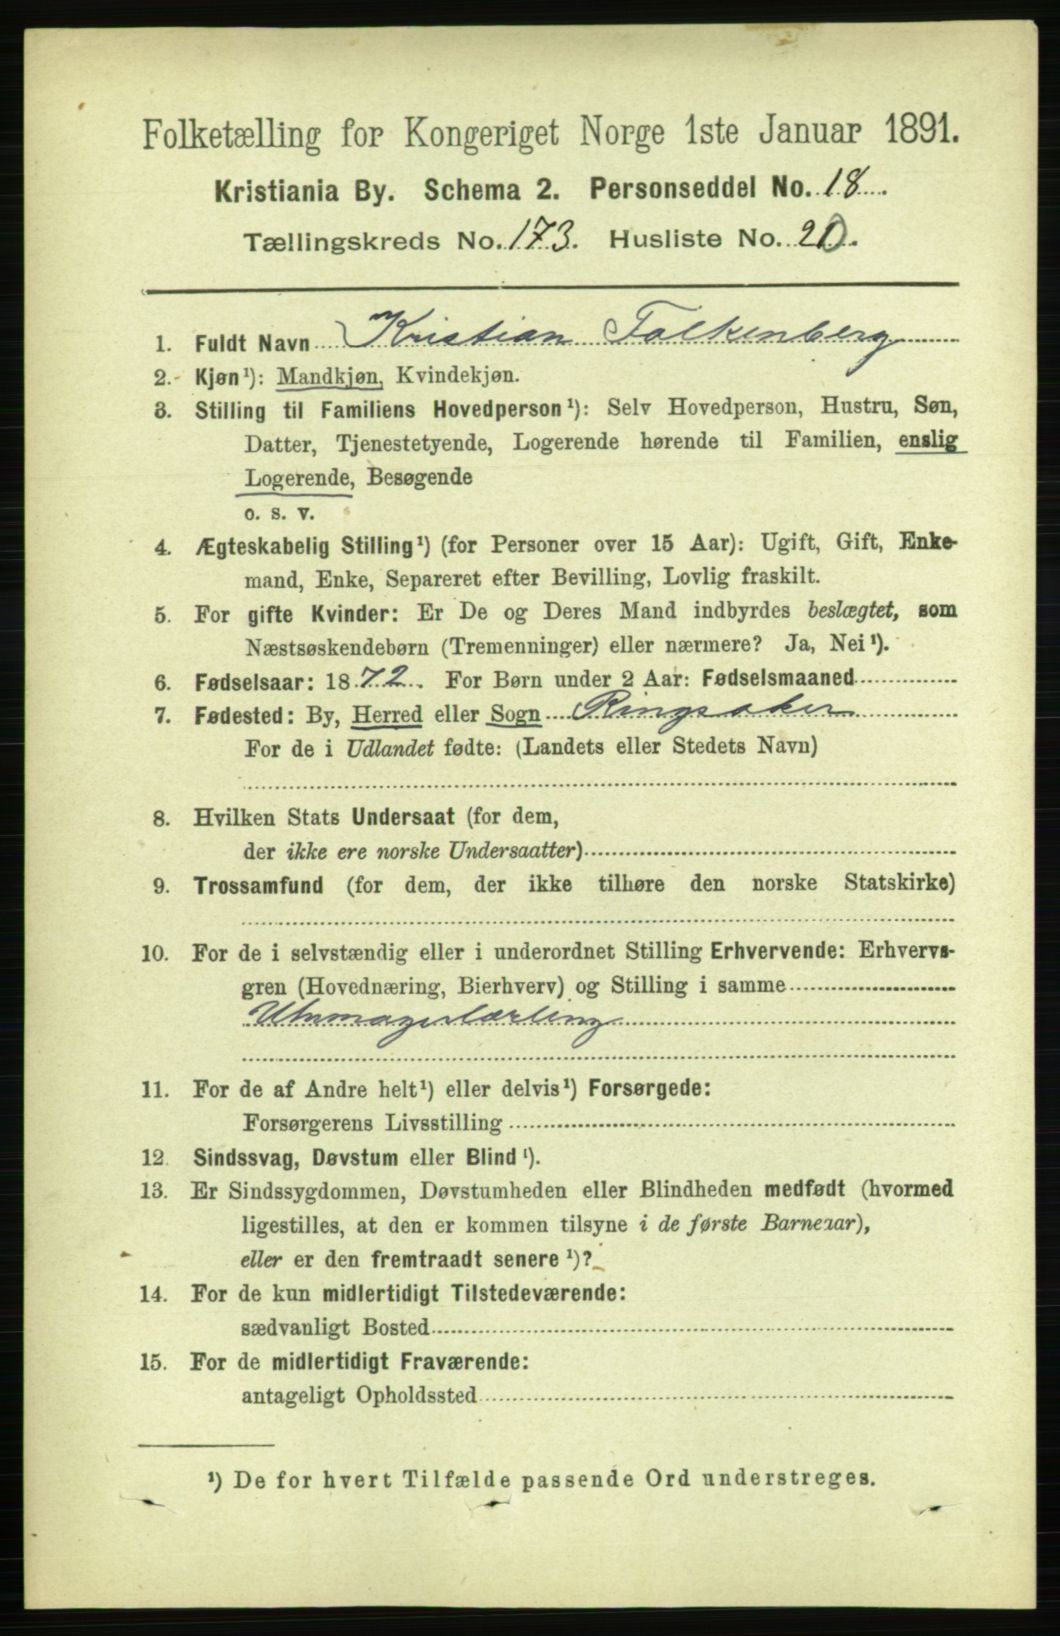 Folketælling for Kongeriget Norge 1ste Januar 1891.
Kristiania By. Schema 2. Personseddel No. 18.
Tællingskreds No. 173. Husliste No. 20.
1. Fuldt Navn Kristian Falkenberg
2. Kjøn¹): Mandkjøn, Kvindekjøn.
3. Stilling til Familiens Hovedperson¹): Selv Hovedperson, Hustru, Søn,
Datter, Tjenestetyende, Logerende hørende til Familien, enslig
Logerende, Besøgende
o. s. v.
4. Ægteskabelig Stilling¹) (for Personer over 15 Aar): Ugift, Gift, Enke-
mand, Enke, Separeret efter Bevilling, Lovlig fraskilt.
5. For gifte Kvinder: Er De og Deres Mand indbyrdes beslægtet, som
Næstsøskendebørn (Tremenninger) eller nærmere? Ja, Nei¹).
6. Fødselsaar: 1872. For Børn under 2 Aar: Fødselsmaaned
7. Fødested: By, Herred eller Sogn Ringsaker
For de i Udlandet fødte: (Landets eller Stedets Navn)
8. Hvilken Stats Undersaat (for dem,
der ikke ere norske Undersaatter)
9. Trossamfund (for dem, der ikke tilhøre den norske Statskirke)
10. For de i selvstændig eller i underordnet Stilling Erhvervende: Erhvervs-
gren (Hovednæring, Bierhverv) og Stilling i samme
Uhrmagerlærling
11. For de af Andre helt¹) eller delvis¹) Forsørgede:
Forsørgerens Livsstilling
12. Sindssvag, Døvstum eller Blind¹).
13. Er Sindssygdommen, Døvstumheden eller Blindheden medfødt (hvormed
ligestilles, at den er kommen tilsyne i de første Barneaar),
eller er den fremtraadt senere¹)?
14. For de kun midlertidigt Tilstedeværende:
sædvanligt Bosted
15. For de midlertidigt Fraværende:
antageligt Opholdssted
¹) De for hvert Tilfælde passende Ord understreges.